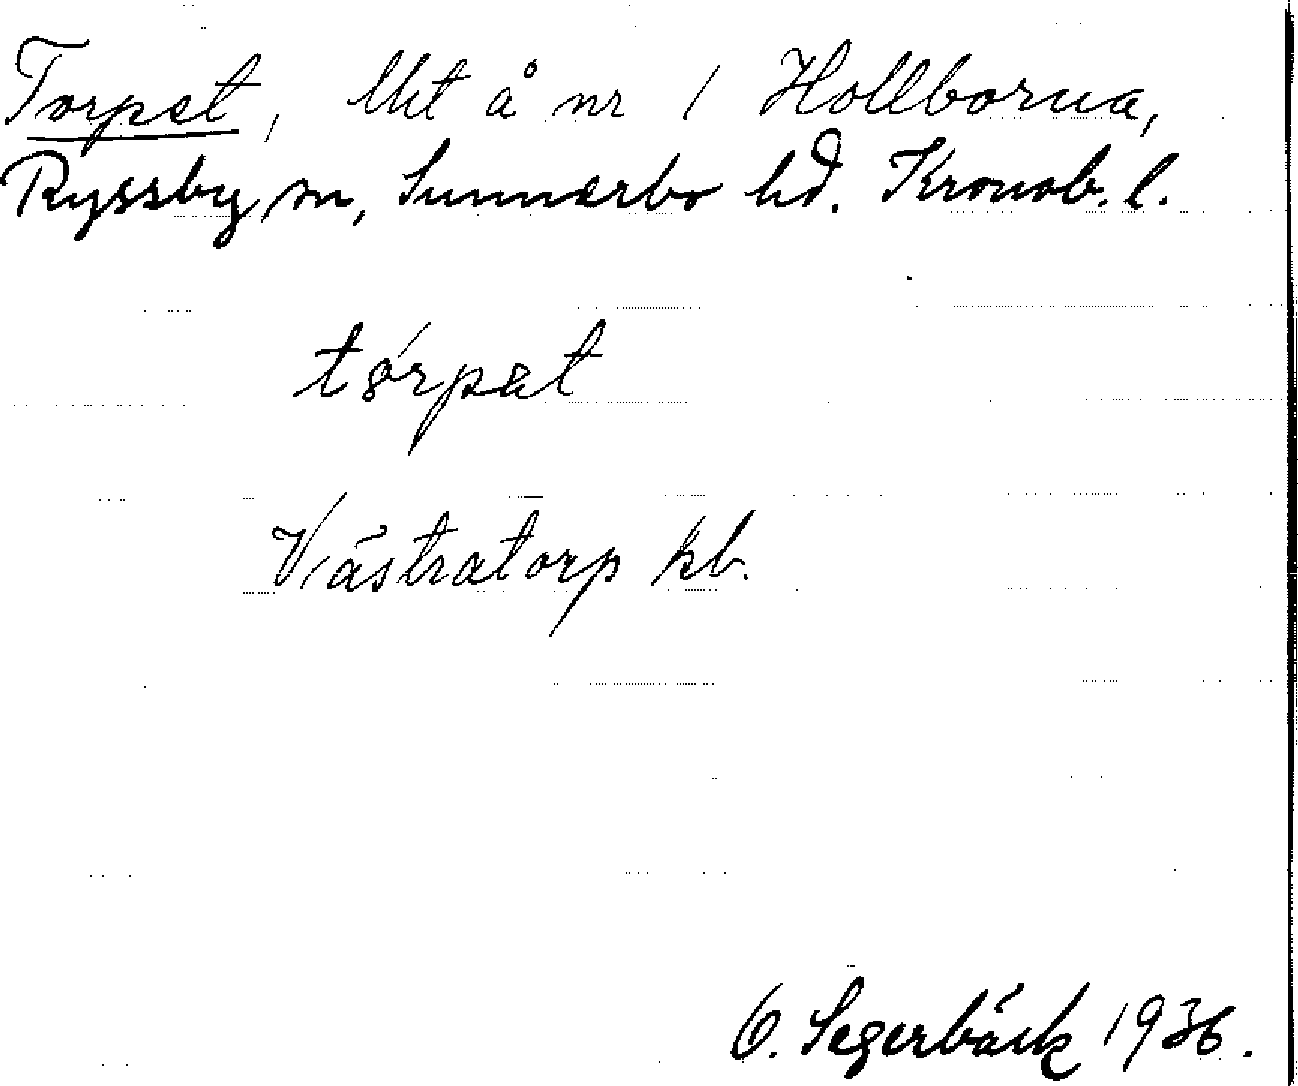 Torpet, lht å nr 1 Hollborna,
Ryssby sn, Sunnerbo hd. Kronob. l.
tórpet
Västratorp kb.
O. Segerbäck 1936.